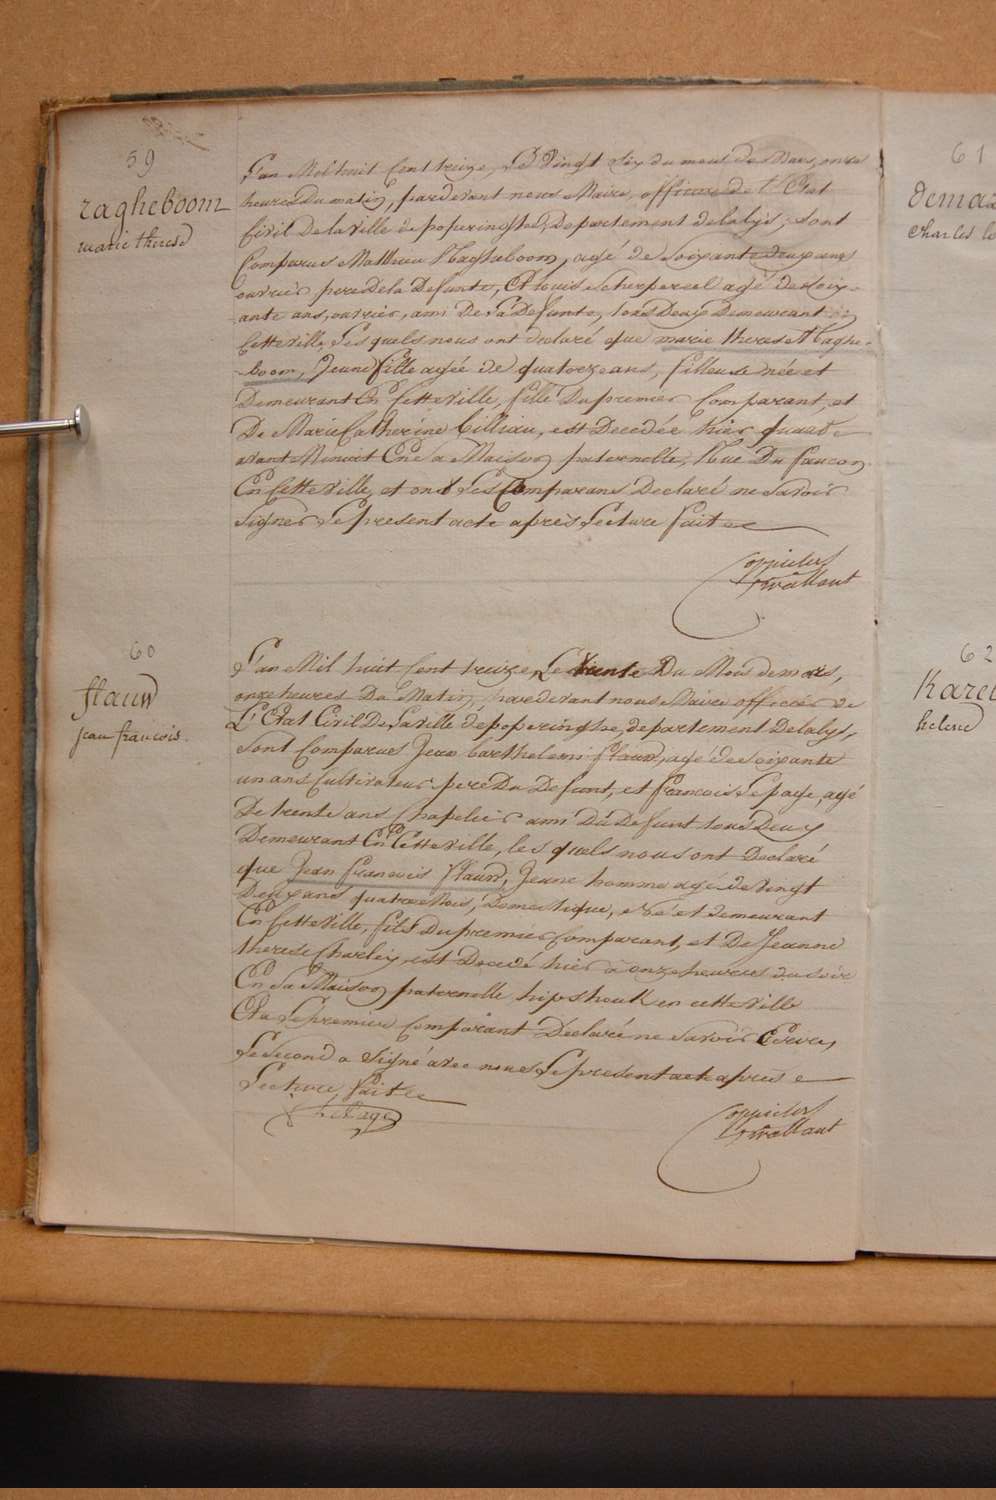 59
ragheboom
marie therese
L'an Mil huit Cent treize, Le Vingt Six du mois de Mars, onze
heures Du matin, pardevant nous Maire, officier de L'Etat
Civil De la Ville de poperinghe, Departement de la lys, Sont
Comparus Mathieu Ragheboom, agé de Soixante deux ans
ouvrier pere De la Defunte, Et louis Scherpereel agé de Soix-
-ante ans, ouvrier, ami de La Defunte, tous Deux Demeurant en
Cette ville, Lesquels nous ont declaré que marie therese Raghe-
-boom, Jeune fille agée de quatorze ans, fileuse née et
Demeurant En Cette ville, fille Du premier Comparant, et
De Marie Catherine Cilliau, est Decedée hier quart
avant Minuit En Sa Maison paternelle, Rue Du faucon
En Cette ville, et ont Les Comparans Declaré ne Savoir
Signer Le present acte après Lecture faite
Coppieters
Stwallant
60
flauw
jean francois.
L'an Mil huit Cent treize, Le trente Du Mois de mars,
onze heures Du Matin, pardevant nous Maire officier de
L'Etat Civil De La ville de poperinghe, departement De la lys,
Sont Comparus Jean Barthelemi flauw, agé de Soixante
un ans Cultivateur pere Du Defunt, et francois Lepage, agé
De trente ans Chapelier ami Du Defunt tous Deux
Demeurant En Cette ville, les quels nous ont Declaré
que Jean francois flauw, Jeune homme agé de Vingt
Deux ans quatre Mois, Domestique, Né et demeurant
En Cette Ville, fils Du premier Comparant, et De Jeanne
therese Charley est Decedé hier à onze heures du soir
En Sa Maison paternelle hipshouk en cette ville
Et a Le premier Comparant Déclaré ne Savoir Ecrire,
Le Second a Signé avec nous Le present acte après
Lecture faite
Lepage
Coppieters
Stwallant
61
demaz
Charles lo
62
Karel